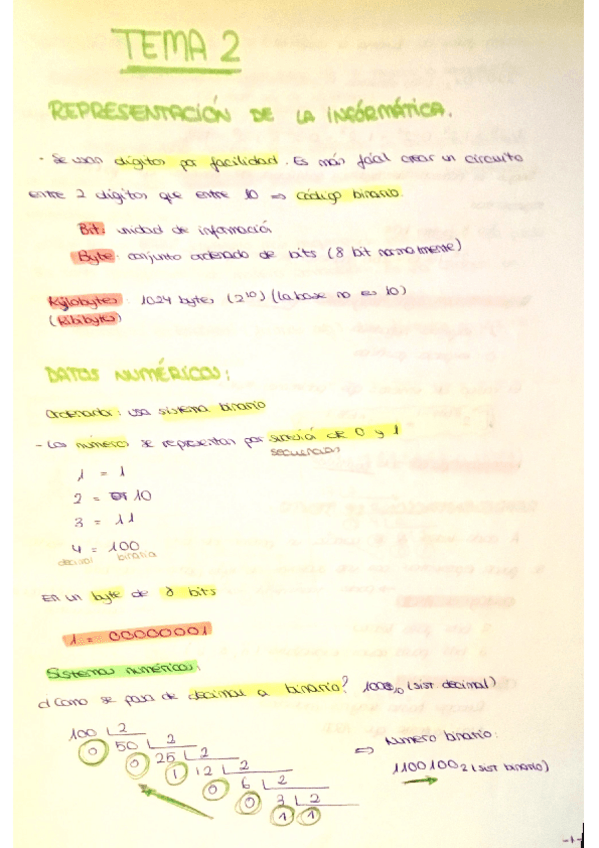 TEMA 2
REPRESENTACIÓN DE LA INFÓRMÁTICA.
- Se usan dígitos por facilidad. Es más fácil crear un circuito
entre 2 dígitos que entre 10 => código binario.
Bit: unidad de información
Byte: conjunto ordenado de bits (8 bit normalmente)
Kylobytes: 1024 bytes (2^10) (la base no es 10)
(Kibibytes)
DATOS NUMÉRICOS:
Ordenador: usa sistema binario
- Los números se representan por sucesión de 0 y 1
secuencias
1 = 1
2 = 10
3 = 11
4 = 100
decimal binaria
En un byte de 8 bits
1 = 00000001
Sistemas numéricos:
¿Cómo se pasa de decimal a binario? 100 10 (sist. decimal)
100 2
0 50 2
0 25 2
1 12 2
0 6 2
0 3 2
1 1
=> Número binario:
1100100 2 (sist binario)
-1-